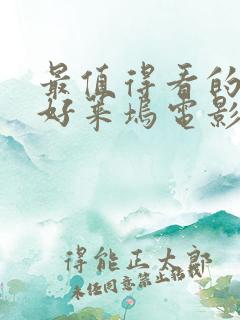 最值得看的
好莱坞电影
得能正太郎
未经同意禁止转载